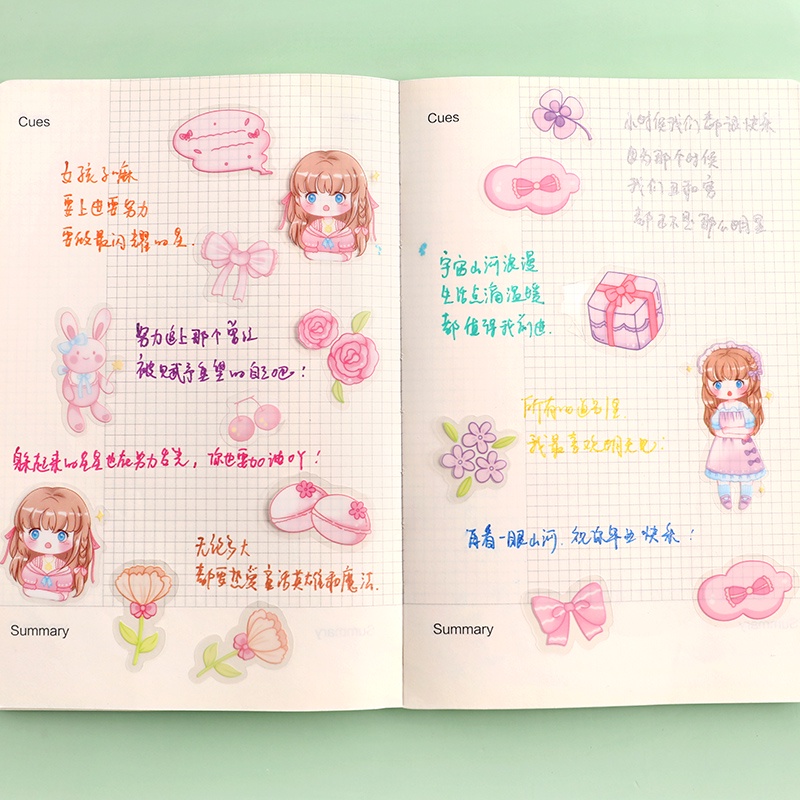 Cues
女孩子嘛
要上也要努力
要做最闪耀的星.
努力追上那个曾让
被赋予重望的自己吧!
躲起来的星星也在努力发光，你也要加油吖!
无论多大
都要热爱童话英雄和魔法.
Summary
Cues
小时候我们都很快乐
因为那个时候
我们且和穷
都还不是那么明显
宇宙山河浪漫
生活点滴温暖
都值得我前进.
所有的道别里
我最喜欢明天见!
再看一眼山河.祝你毕业快乐!
Summary